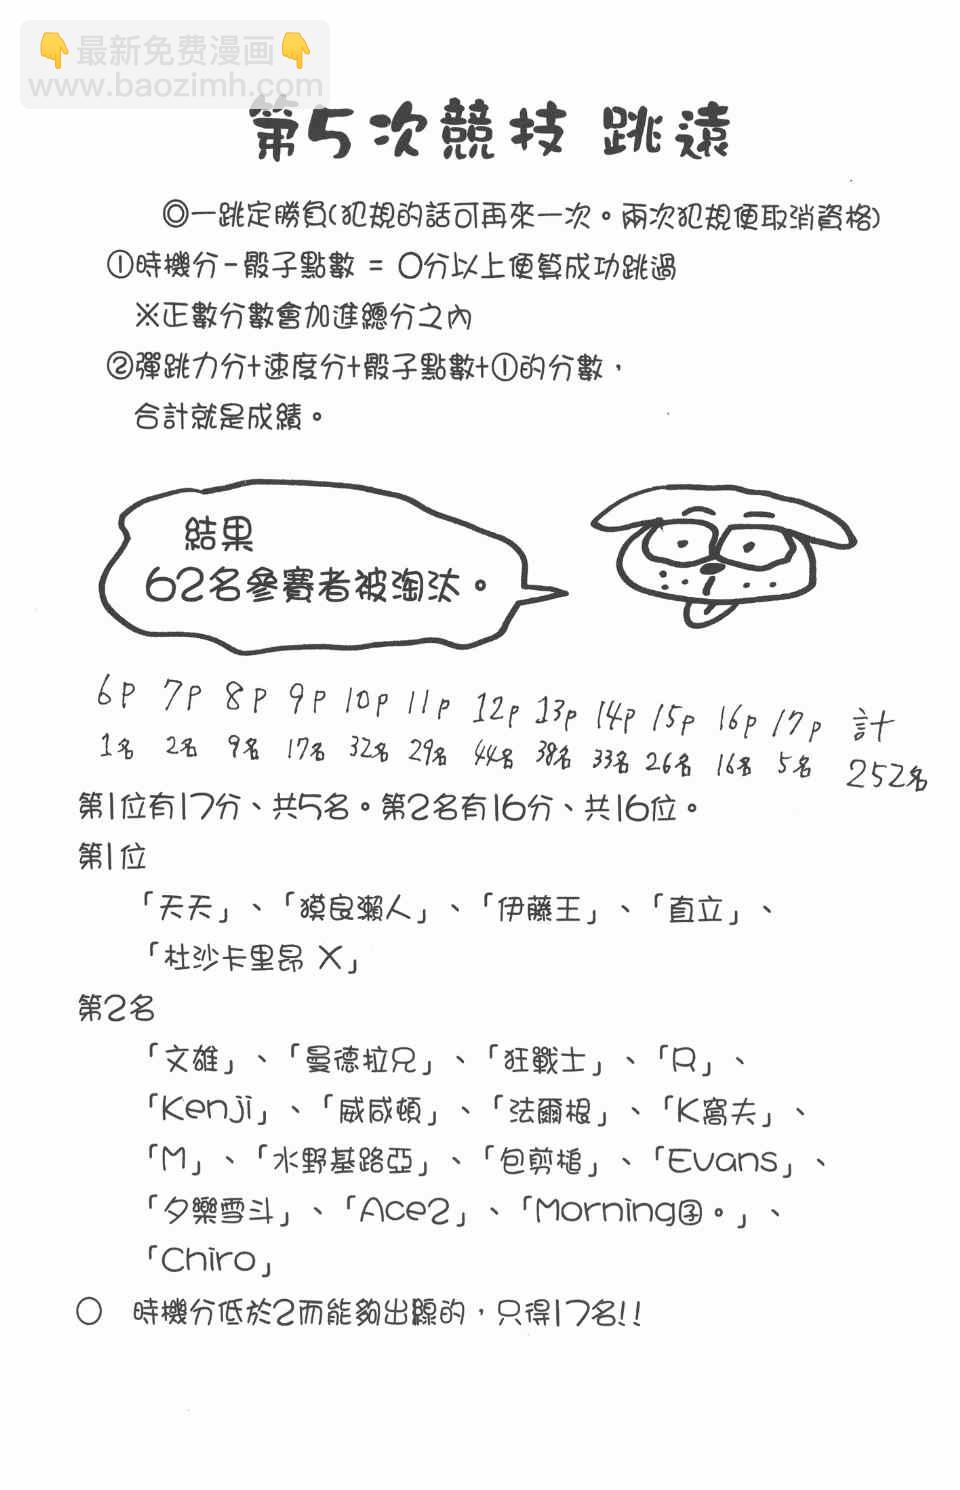 👇最新免费漫画👇
www.baozimh.com
第5次競技 跳遠
◎一跳定勝負(犯規的話可再來一次。兩次犯規便取消資格)
①時機分-骰子點數 = 0分以上便算成功跳過
※正數分數會加進總分之內
②彈跳力分+速度分+骰子點數+①的分數,
合計就是成績。
結果
62名參賽者被淘汰。
6p 7p 8p 9p 10p 11p 12p 13p 14p 15p 16p 17p 計
1名 2名 9名 17名 32名 29名 44名 38名 33名 26名 16名 5名 252名
第1位有17分、共5名。第2名有16分、共16位。
第1位
「天天」、「獏良瀨人」、「伊藤王」、「直立」、
「杜沙卡里昂 X」
第2名
「文雄」、「曼德拉兄」、「狂戰士」、「R」、
「Kenji」、「威咸頓」、「法爾根」、「K窩夫」、
「M」、「水野基路亞」、「包剪槌」、「Evans」、
「夕樂雪斗」、「Ace2」、「Morning团。」、
「Chiro」
○ 時機分低於2而能夠出線的,只得17名!!